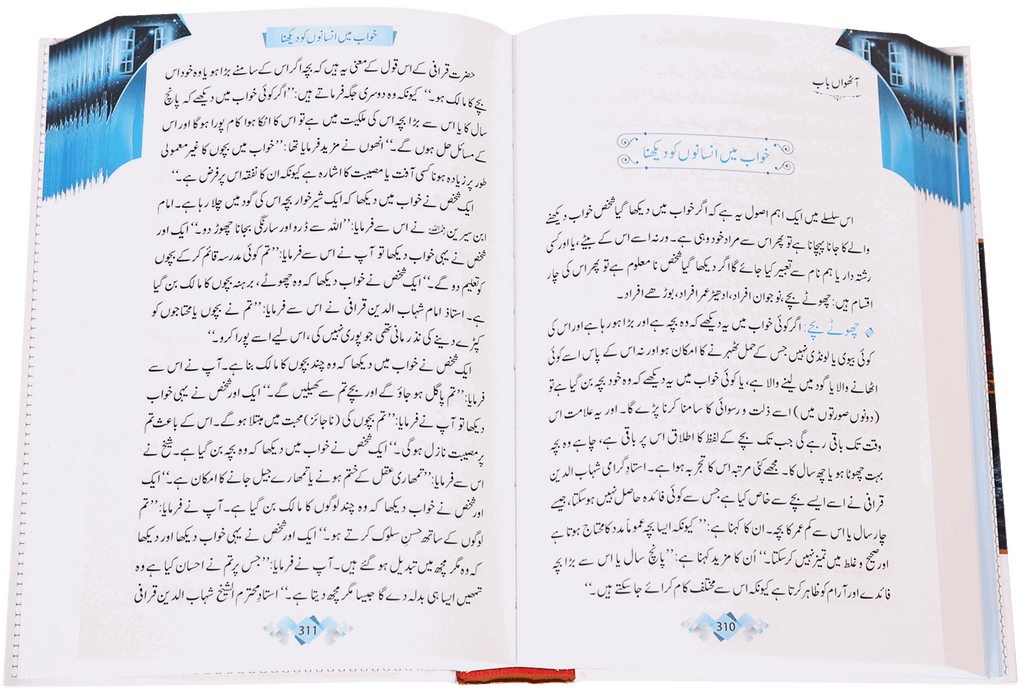 آٹھواں باب
خواب میں انسانوں کو دیکھنا
اس سلسلے میں ایک اہم اصول یہ ہے کہ اگر خواب میں دیکھا گیا شخص خواب دیکھنے
والے کا جانا پہچانا ہے تو پھر اس سے مراد خود وہی ہے۔ ورنہ اسے اس کے بیٹے، یا اور کسی
رشتہ دار یا ہم نام سے تعبیر کیا جائے گا اگر دیکھا گیا شخص نا معلوم ہے تو پھر اس کی چار
اقسام ہیں: چھوٹے بچے، نوجوان افراد، ادھیڑ عمر افراد، بوڑھے افراد۔
چھوٹے بچے: اگر کوئی خواب میں یہ دیکھے کہ وہ بچہ ہے اور بڑا ہو رہا ہے اور اس کی
کوئی بیوی یا لونڈی نہیں جس کے حمل ٹھہرنے کا امکان ہو اور نہ اس کے پاس اسے کوئی
اٹھانے والا یا گود میں لینے والا ہے، یا کوئی خواب میں یہ دیکھے کہ وہ خود بچہ بن گیا ہے تو
(دونوں صورتوں میں) اسے ذلت و رسوائی کا سامنا کرنا پڑے گا۔ اور یہ علامت اس
وقت تک باقی رہے گی جب تک بچے کے لفظ کا اطلاق اس پر باقی ہے، چاہے وہ بچہ
بہت چھوٹا ہو یا چھ سال کا۔ مجھے کئی مرتبہ اس کا تجربہ ہوا ہے۔ استادِ گرامی شہاب الدین
قرافی نے اسے ایسے بچے سے خاص کیا ہے جس سے کوئی فائدہ حاصل نہیں ہو سکتا، جیسے
چار سال یا اس سے کم عمر کا بچہ۔ ان کا کہنا ہے: ’’کیونکہ ایسا بچہ عموماً مدد کا محتاج ہوتا ہے
اور صحیح و غلط میں تمیز نہیں کر سکتا۔‘‘ اُن کا مزید کہنا ہے: ’’پانچ سال یا اس سے بڑا بچہ
فائدے اور آرام کو ظاہر کرتا ہے کیونکہ اس سے مختلف کام کرائے جا سکتے ہیں۔‘‘
310
خواب میں انسانوں کو دیکھنا
حضرت قرافی کے اس قول کے معنی یہ ہیں کہ بچہ اگر اس کے سامنے بڑا ہو یا وہ خود اس
بچے کا مالک ہو۔‘‘ کیونکہ وہ دوسری جگہ فرماتے ہیں: ’’اگر کوئی خواب میں دیکھے کہ پانچ
سال کا یا اس سے بڑا بچہ اس کی ملکیت میں ہے تو اس کا اٹکا ہوا کام پورا ہو گا اور اس
کے مسائل حل ہوں گے۔‘‘ انھوں نے مزید فرمایا تھا: ’’خواب میں بچوں کا غیر معمولی
طور پر زیادہ ہونا کسی آفت یا مصیبت کا اشارہ ہے کیونکہ ان کا نفقہ اس پر فرض ہے۔‘‘
ایک شخص نے خواب میں دیکھا کہ ایک شیر خوار بچہ اس کی گود میں چلا رہا ہے۔ امام
ابن سیرین نے اس سے فرمایا: ’’اللہ سے ڈرو اور سارنگی بجانا چھوڑ دو۔‘‘ ایک اور
شخص نے یہی خواب دیکھا تو آپ نے اس سے فرمایا: ’’تم کوئی مدرسہ قائم کر کے بچوں
کو تعلیم دو گے۔‘‘ ایک شخص نے خواب دیکھا کہ وہ چھوٹے، برہنہ بچوں کا مالک بن گیا
ہے۔ استاذ امام شہاب الدین قرافی نے اس سے فرمایا: ’’تم نے بچوں یا محتاجوں کو
کپڑے دینے کی نذر مانی تھی جو پوری نہیں کی، اس لیے اسے پورا کرو۔‘‘
ایک شخص نے خواب میں دیکھا کہ وہ چند بچوں کا مالک بنا ہے۔ آپ نے اس سے
فرمایا: ’’تم پاگل ہو جاؤ گے اور بچے تم سے کھیلیں گے۔‘‘ ایک اور شخص نے یہی خواب
دیکھا تو آپ نے فرمایا: ’’تم بچوں کی (ناجائز) محبت میں مبتلا ہو گے۔ اس کے باعث تم
پر مصیبت نازل ہو گی۔‘‘ ایک شخص نے خواب میں دیکھا کہ وہ بچہ بن گیا ہے۔ شیخ نے
اس سے فرمایا: ’’تمھاری عقل کے ختم ہونے یا تمھارے جیل جانے کا امکان ہے۔‘‘ ایک
اور شخص نے خواب دیکھا کہ وہ چند لوگوں کا مالک بن گیا ہے۔ آپ نے فرمایا: ’’تم
لوگوں کے ساتھ حسن سلوک کرتے ہو۔‘‘ ایک اور شخص نے یہی خواب دیکھا اور دیکھا
کہ وہ مگر مچھ میں تبدیل ہو گئے ہیں۔ آپ نے فرمایا: ’’جس پر تم نے احسان کیا ہے وہ
تمھیں ایسا ہی بدلہ دے گا جیسا مگر مچھ دیتا ہے۔‘‘ استادِ محترم الشیخ شہاب الدین قرافی
311